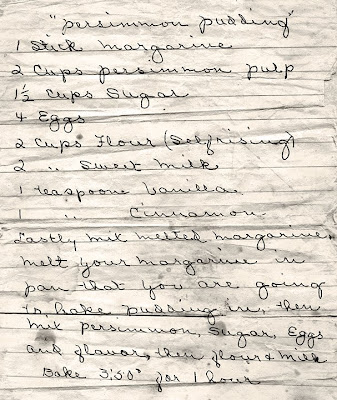 "persimmon pudding"
1 Stick margarine
2 Cups persimmon pulp
1½ Cups Sugar
4 Eggs
2 Cups Flour (Selfrising)
2 " Sweet Milk
1 Teaspoone Vanilla
1 " Cinnamon
Lastly mix melted margarine,
melt your margarine in
pan that you are going
to bake pudding in, then
mix persimmon, Sugar, Eggs
and flavor, then flour & milk
Bake 350° for 1 hour